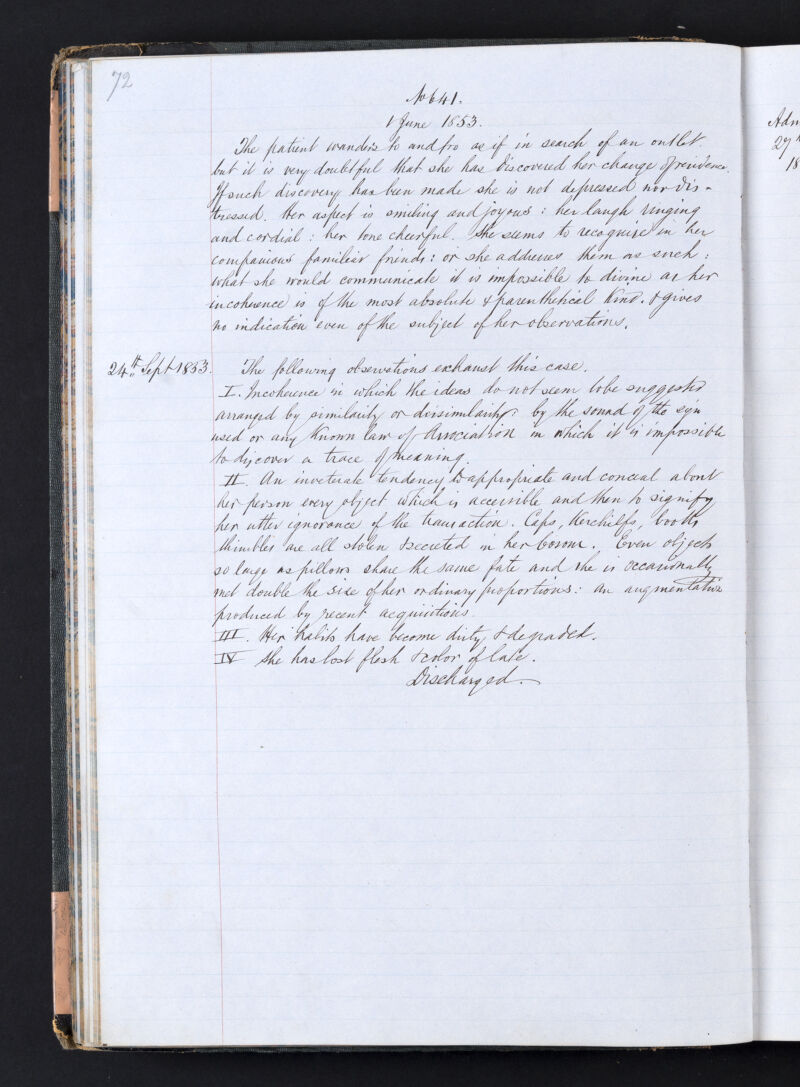 72
No 641.
1 June 1853.
The patient wanders to and fro as if in search of an outlet.
but it is very doubtful that she has discovered her change of residence.
If such discovery has been made she is not depressed nor dis-
tressed. Her aspect is smiling and joyous: her laugh ringing
and cordial: her tone cheerful. She seems to recognize in her
companions familiar friends: or she addresses them as such:
what she would communicate it is impossible to divine as her
incoherence is of the most absolute & parenthetical kind. & gives
no indication even of the subject of her observations.
24th Sept 1853.
The following observations exhaust this case.
I. Incoherence in which the ideas do not seem to be suggested
arranged by similarity or dissimilarity by the sound of the sign
used or any known law of Association in which it is impossible
to discover a trace of meaning.
II. An inveterate tendency to appropriate and conceal about
her person every object which is accessible and then to signify
her utter ignorance of the transaction. Caps, Kerchiefs, books
thimbles are all stolen & secreted in her bosom. Even objects
so large as pillows share the same fate and she is occasionally
met double the size of her ordinary proportions: an augmentation
produced by recent acquisitions.
III. Her habits have become dirty & degraded.
IV She has lost flesh & color of late.
Discharged.
Adm
27th
18